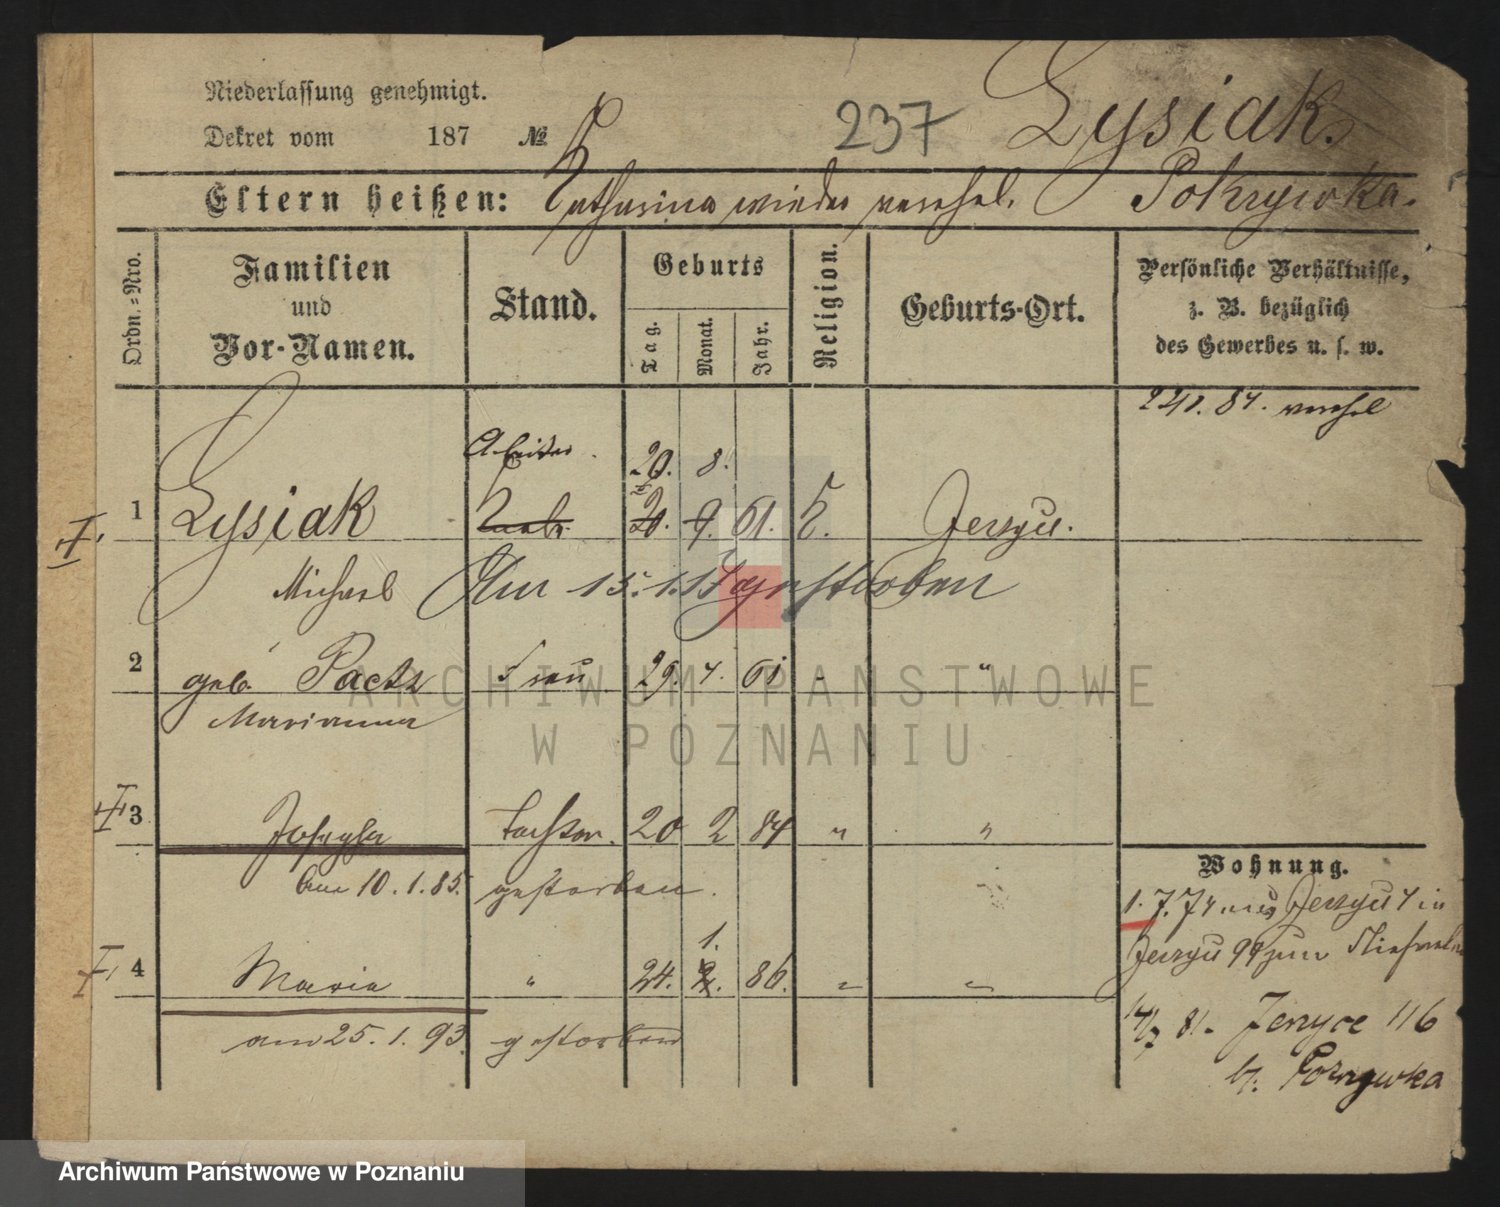 Niederlassung genehmigt.
Dekret vom 187 №
237
Lysiak.
Eltern heißen: Catharina wieder verehel. Pokrywka.
Ordn.-Nro.
Familien und Vor-Namen.
Stand.
Geburts
Tag.
Monat.
Jahr.
Religion.
Geburts-Ort.
Persönliche Verhältnisse, z. B. bezüglich des Gewerbes u. s. w.
84. verehel
Arbeiter. 20. 8.
1 Lysiak 9. 61. Jerzyce.
Michael Am 15.1.17 gestorben
2 geb. Paetz Frau 29. 4. 61 "
Marianna
3 Josepha Tochter. 20 2 84 " "
am 10.1.85. gestorben.
1.
4 Maria " 24. 2. 86. " "
am 25.1.93. gestorben
Wohnung.
1.7.74 aus Jerzyce 4 in
Jerzyce 99 zum
81. Jerzyce 116
b. Pokrywka
ARCHIWUM PAŃSTWOWE
W POZNANIU
Archiwum Państwowe w Poznaniu